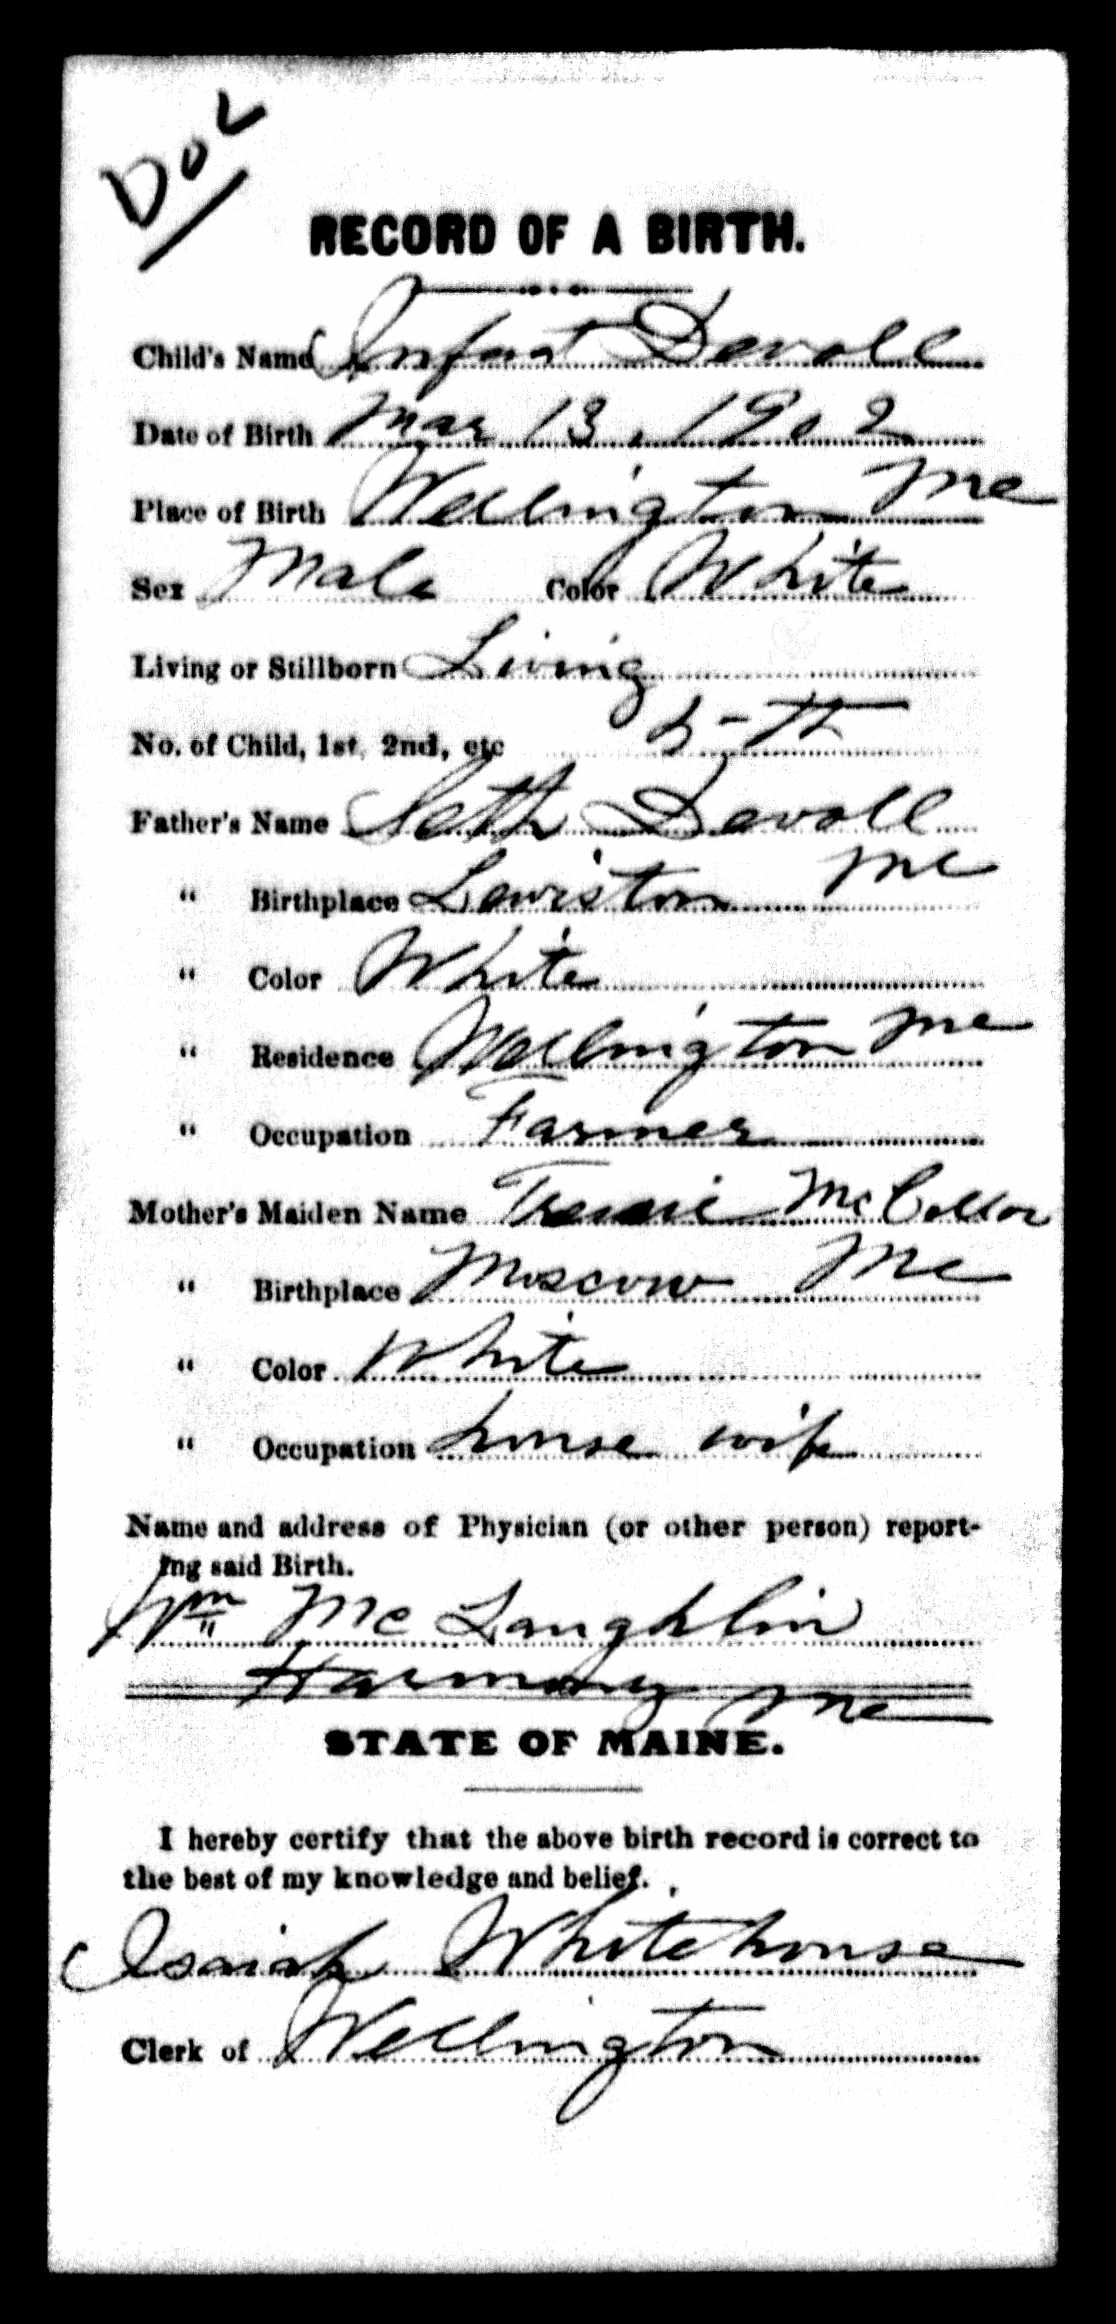 Dov
RECORD OF A BIRTH.
Child's Name Infant Devoll
Date of Birth Mar 13, 1902
Place of Birth Wellington Me
Sex Male Color White
Living or Stillborn Living
No. of Child, 1st, 2nd, etc 5-th
Father's Name Seth Devoll
" Birthplace Lewiston Me
" Color White
" Residence Wellington Me
" Occupation Farmer
Mother's Maiden Name McCollor
" Birthplace Moscow Me
" Color White
" Occupation house wife
Name and address of Physician (or other person) report-
ing said Birth.
Wm McLaughlin
Harmony Me
STATE OF MAINE.
I hereby certify that the above birth record is correct to
the best of my knowledge and belief.
Isaiah Whitehouse
Clerk of Wellington